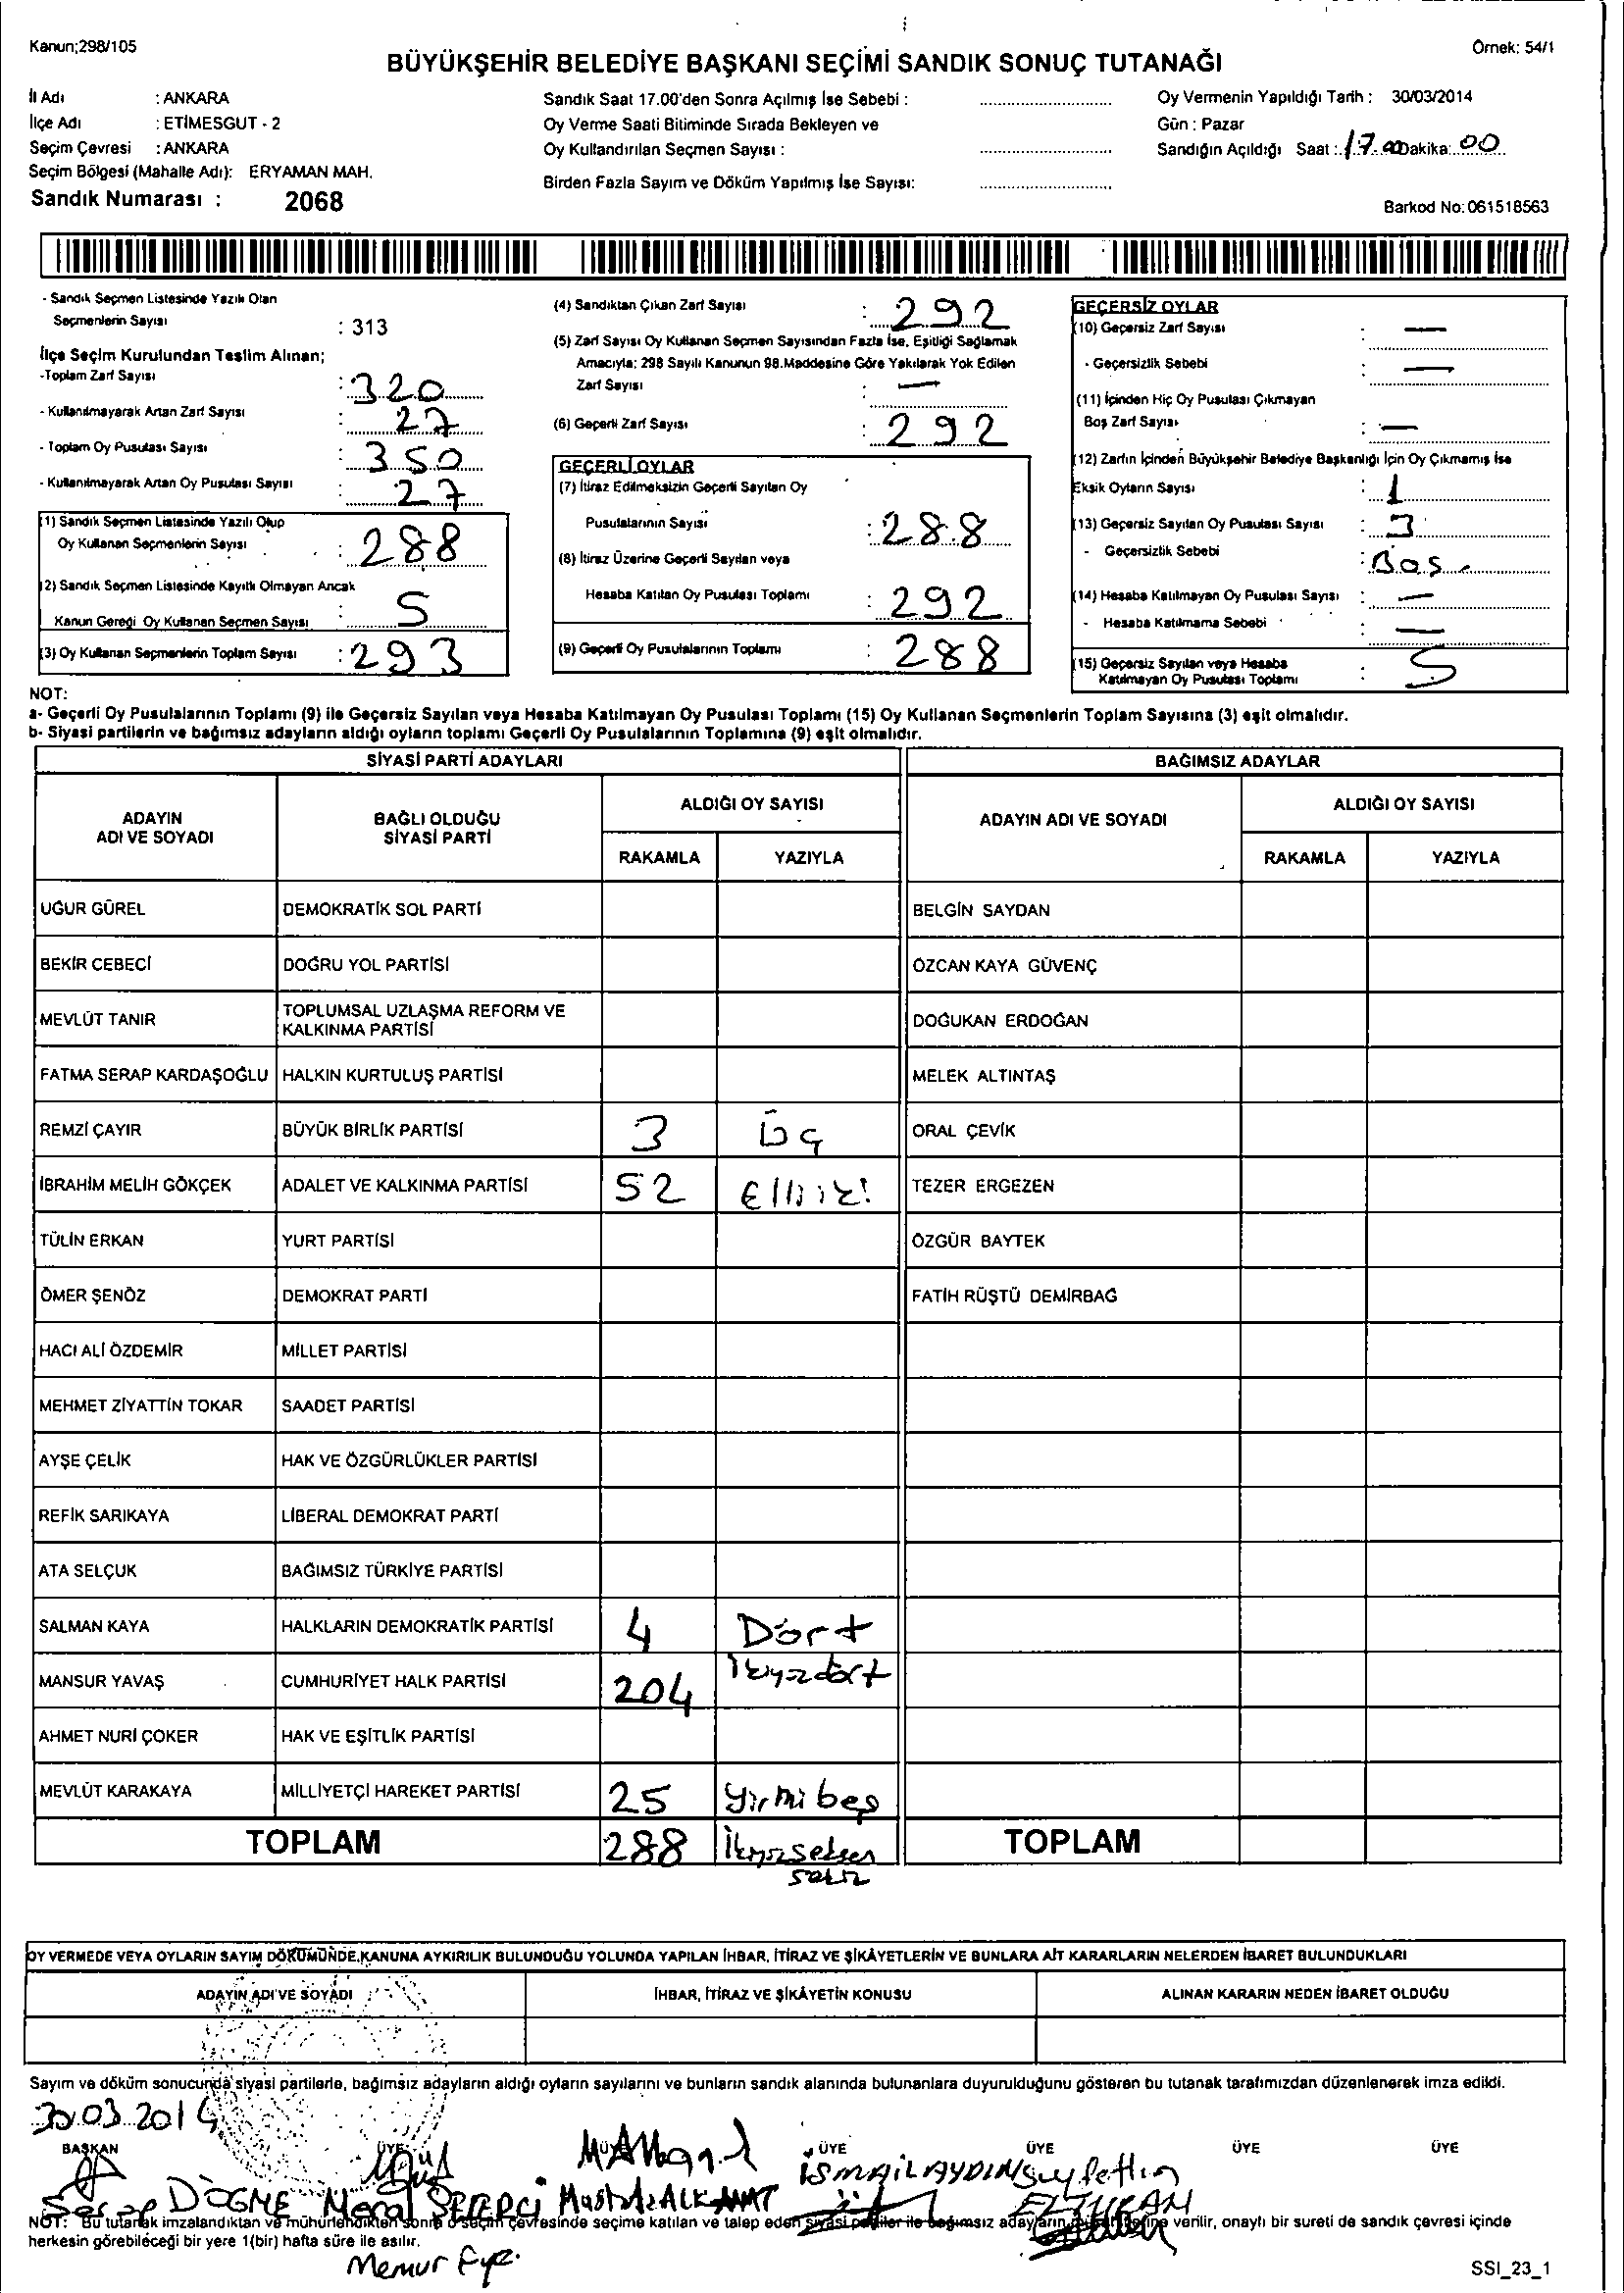 Kanun;298/105
Örnek: 54/1
BÜYÜKŞEHİR BELEDİYE BAŞKANI SEÇİMİ SANDIK SONUÇ TUTANAĞI
İl Adı : ANKARA
İlçe Adı : ETİMESGUT - 2
Seçim Çevresi : ANKARA
Seçim Bölgesi (Mahalle Adı): ERYAMAN MAH.
Sandık Numarası : 2068
Sandık Saat 17.00'den Sonra Açılmış İse Sebebi :
Oy Verme Saati Bitiminde Sırada Bekleyen ve
Oy Kullandırılan Seçmen Sayısı :
Birden Fazla Sayım ve Döküm Yapılmış İse Sayısı:
Oy Vermenin Yapıldığı Tarih : 30/03/2014
Gün : Pazar
Sandığın Açıldığı Saat : 17.00 Dakika: 00
Barkod No: 061518563
- Sandık Seçmen Listesinde Yazılı Olan
Seçmenlerin Sayısı : 313
İlçe Seçim Kurulundan Teslim Alınan;
-Toplam Zarf Sayısı : 320
- Kullanılmayarak Artan Zarf Sayısı : 27
- Toplam Oy Pusulası Sayısı : 350
- Kullanılmayarak Artan Oy Pusulası Sayısı : 27
(1) Sandık Seçmen Listesinde Yazılı Olup
Oy Kullanan Seçmenlerin Sayısı : 288
(2) Sandık Seçmen Listesinde Kayıtlı Olmayan Ancak
Kanun Gereği Oy Kullanan Seçmen Sayısı : 5
(3) Oy Kullanan Seçmenlerin Toplam Sayısı : 293
(4) Sandıktan Çıkan Zarf Sayısı : 292
(5) Zarf Sayısı Oy Kullanan Seçmen Sayısından Fazla İse, Eşitliği Sağlamak
Amacıyla; 298 Sayılı Kanunun 98.Maddesine Göre Yakılarak Yok Edilen
Zarf Sayısı : —
(6) Geçerli Zarf Sayısı : 292
GEÇERLİ OYLAR
(7) İtiraz Edilmeksizin Geçerli Sayılan Oy
Pusulalarının Sayısı : 288
(8) İtiraz Üzerine Geçerli Sayılan veya
Hesaba Katılan Oy Pusulası Toplamı : 292
(9) Geçerli Oy Pusulalarının Toplamı : 288
GEÇERSİZ OYLAR
(10) Geçersiz Zarf Sayısı : —
- Geçersizlik Sebebi : —
(11) İçinden Hiç Oy Pusulası Çıkmayan
Boş Zarf Sayısı : —
(12) Zarfın İçinden Büyükşehir Belediye Başkanlığı İçin Oy Çıkmamış İse
Eksik Oyların Sayısı : 1
(13) Geçersiz Sayılan Oy Pusulası Sayısı : 3
- Geçersizlik Sebebi : Boş
(14) Hesaba Katılmayan Oy Pusulası Sayısı : —
- Hesaba Katılmama Sebebi : —
(15) Geçersiz Sayılan veya Hesaba
Katılmayan Oy Pusulası Toplamı : 5
NOT:
a- Geçerli Oy Pusulalarının Toplamı (9) ile Geçersiz Sayılan veya Hesaba Katılmayan Oy Pusulası Toplamı (15) Oy Kullanan Seçmenlerin Toplam Sayısına (3) eşit olmalıdır.
b- Siyasi partilerin ve bağımsız adayların aldığı oyların toplamı Geçerli Oy Pusulalarının Toplamına (9) eşit olmalıdır.
SİYASİ PARTİ ADAYLARI BAĞIMSIZ ADAYLAR
ADAYIN ADI VE SOYADI BAĞLI OLDUĞU SİYASİ PARTİ ALDIĞI OY SAYISI ADAYIN ADI VE SOYADI ALDIĞI OY SAYISI
RAKAMLA YAZIYLA RAKAMLA YAZIYLA
UĞUR GÜREL DEMOKRATİK SOL PARTİ BELGİN SAYDAN
BEKİR CEBECİ DOĞRU YOL PARTİSİ ÖZCAN KAYA GÜVENÇ
MEVLÜT TANIR TOPLUMSAL UZLAŞMA REFORM VE KALKINMA PARTİSİ DOĞUKAN ERDOĞAN
FATMA SERAP KARDAŞOĞLU HALKIN KURTULUŞ PARTİSİ MELEK ALTINTAŞ
REMZİ ÇAYIR BÜYÜK BİRLİK PARTİSİ 3 Üç ORAL ÇEVİK
İBRAHİM MELİH GÖKÇEK ADALET VE KALKINMA PARTİSİ 52 Elliiki TEZER ERGEZEN
TÜLİN ERKAN YURT PARTİSİ ÖZGÜR BAYTEK
ÖMER ŞENÖZ DEMOKRAT PARTİ FATİH RÜŞTÜ DEMİRBAĞ
HACI ALİ ÖZDEMİR MİLLET PARTİSİ
MEHMET ZİYATTİN TOKAR SAADET PARTİSİ
AYŞE ÇELİK HAK VE ÖZGÜRLÜKLER PARTİSİ
REFİK SARIKAYA LİBERAL DEMOKRAT PARTİ
ATA SELÇUK BAĞIMSIZ TÜRKİYE PARTİSİ
SALMAN KAYA HALKLARIN DEMOKRATİK PARTİSİ 4 Dört
MANSUR YAVAŞ CUMHURİYET HALK PARTİSİ 204 İkiyüzdört
AHMET NURİ ÇOKER HAK VE EŞİTLİK PARTİSİ
MEVLÜT KARAKAYA MİLLİYETÇİ HAREKET PARTİSİ 25 Yirmibeş
TOPLAM 288 İkiyüzseksen TOPLAM
sekiz
OY VERMEDE VEYA OYLARIN SAYIM DÖKÜMÜNDE,KANUNA AYKIRILIK BULUNDUĞU YOLUNDA YAPILAN İHBAR, İTİRAZ VE ŞİKÂYETLERİN VE BUNLARA AİT KARARLARIN NELERDEN İBARET BULUNDUKLARI
ADAYIN ADI VE SOYADI İHBAR, İTİRAZ VE ŞİKÂYETİN KONUSU ALINAN KARARIN NEDEN İBARET OLDUĞU
Sayım ve döküm sonucunda siyasi partilerle, bağımsız adayların aldığı oyların sayılarını ve bunların sandık alanında bulunanlara duyurulduğunu gösteren bu tutanak tarafımızdan düzenlenerek imza edildi.
30.03.2014
BAŞKAN ÜYE ÜYE ÜYE ÜYE ÜYE ÜYE
İSMAİL AYDIN Seyfettin
Serap DÖGME Meral Mustafa ELTURAN
NOT: Bu tutanak imzalandıktan ve mühürlendikten sonra o seçim çevresinde seçime katılan ve talep eden siyasi partiler ile bağımsız adayların müşahitlerine verilir, onaylı bir sureti de sandık çevresi içinde
herkesin görebileceği bir yere 1(bir) hafta süre ile asılır.
Memur Üye
SSI_23_1